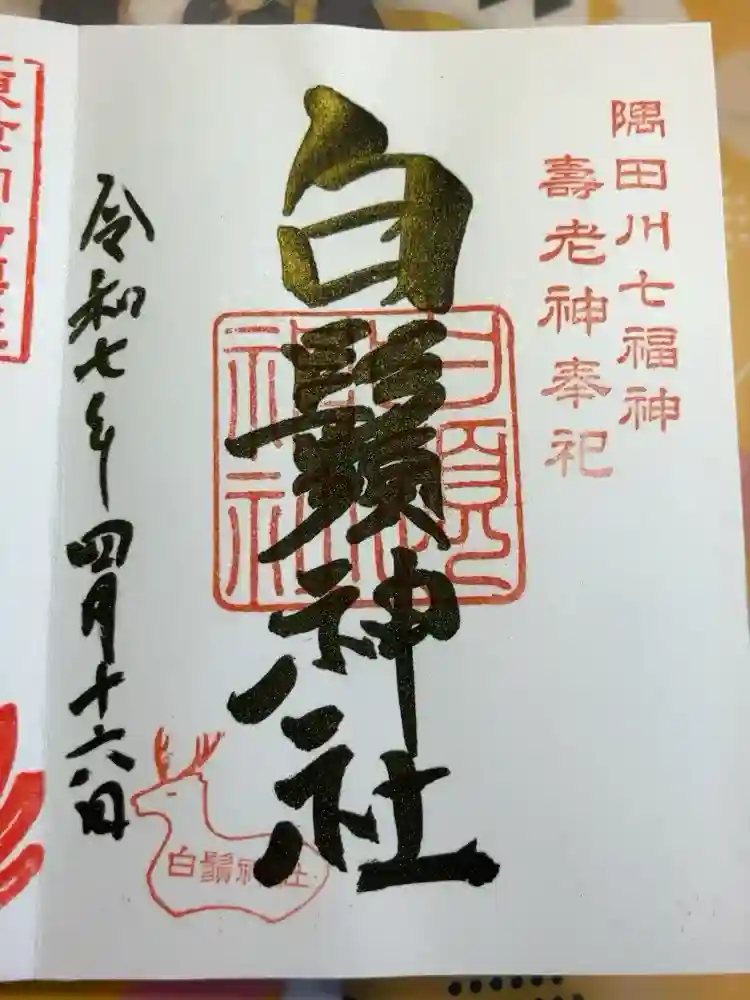 隅田川七福神
壽老神奉祀
白鬚神社
白鬚神社
令和七年四月十六日
白鬚神社